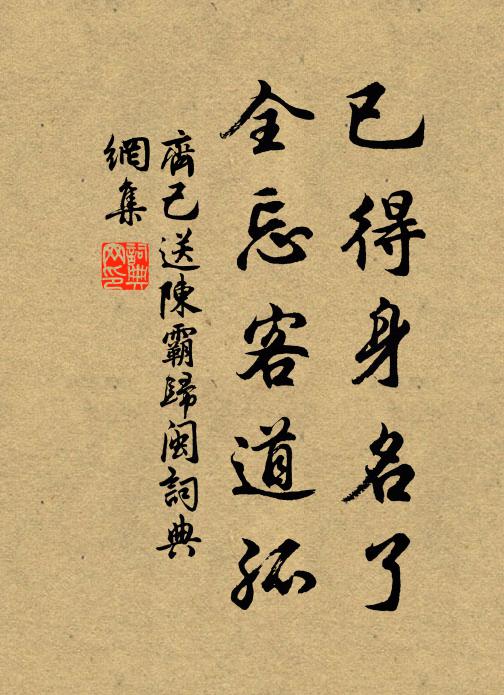 已得身名了
全忘客道孤
齊己送陳霸歸閩詞典
網集
詞典
網印